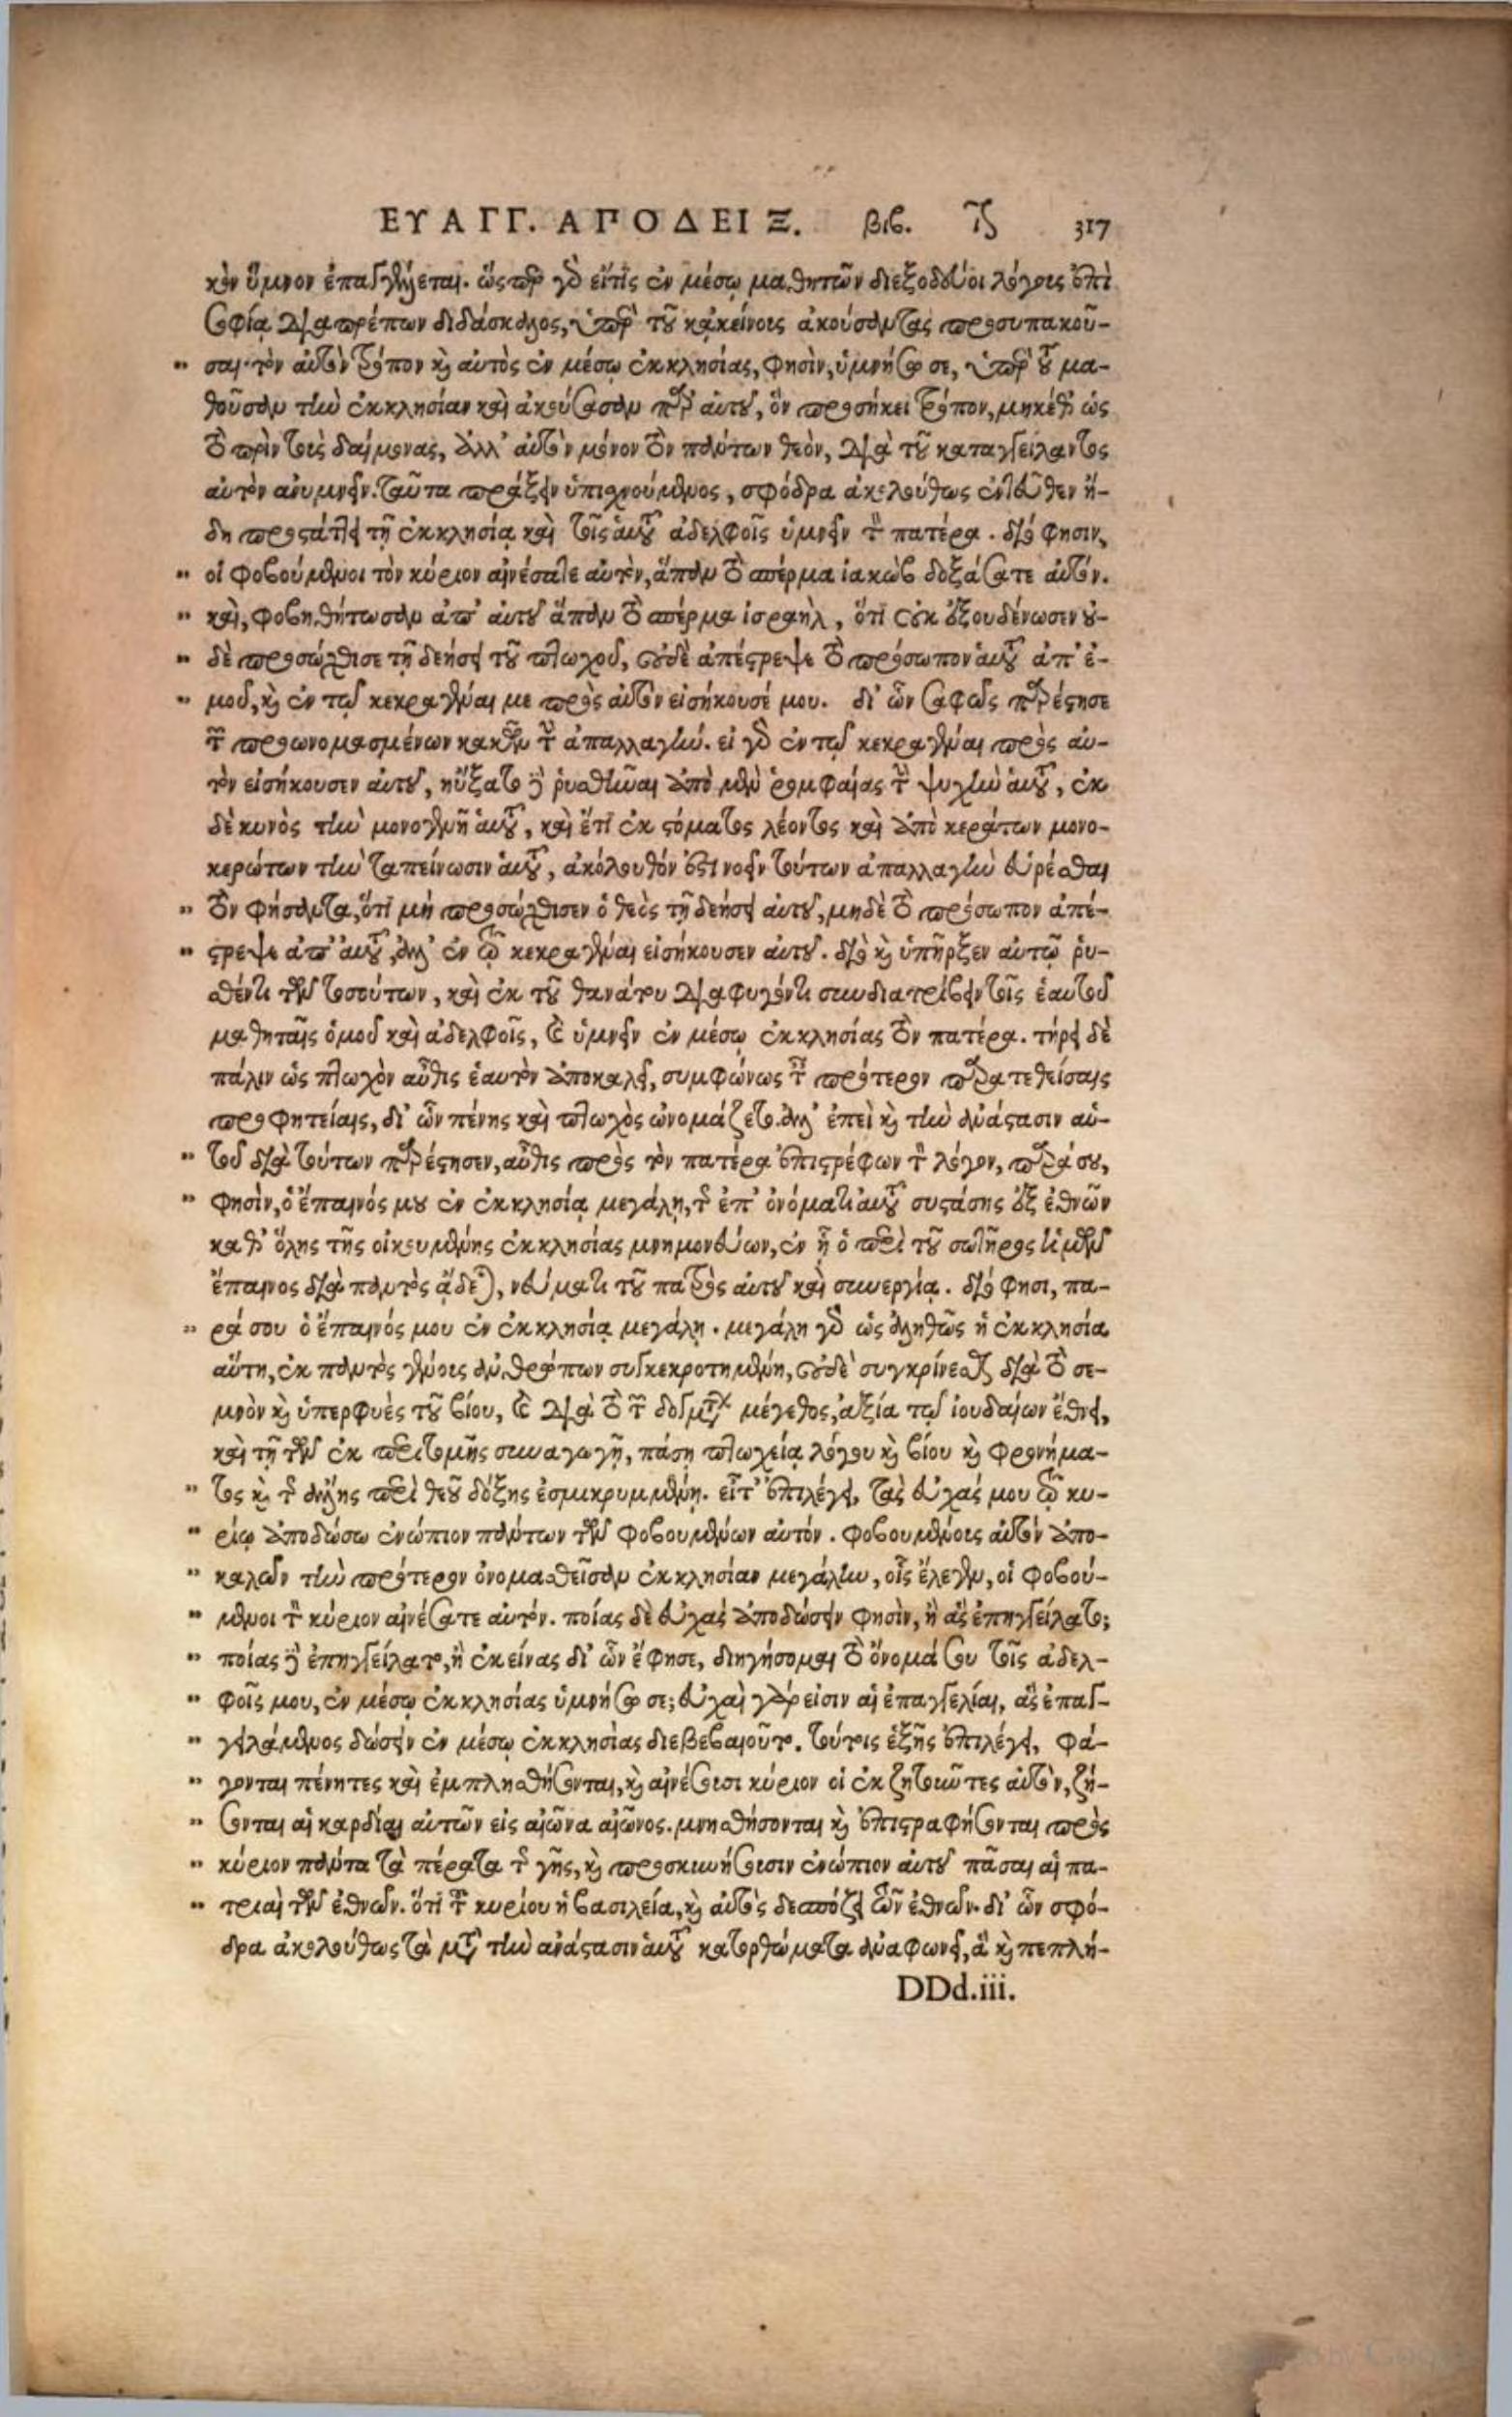 ΕΥΑΓΓ. ΑΠΟΔΕΙΞ. βιβ. ι 317
κὸν ὕμνον ἐπαγγέλλεται. ὥσπερ γὰρ εἴ τις ἐν μέσῳ μαθητῶν διεξοδεύοι λόγους ἐπὶ
σοφίᾳ διαπρέπων διδάσκαλος, ὑπὲρ τοῦ κἀκείνους ἀκούσαντας προσυπακοῦ-
" σαι· τὸν αὐτὸν τρόπον καὶ αὐτὸς ἐν μέσῳ ἐκκλησίας, φησὶν, ὑμνήσω σε, ὑπὲρ τοῦ μα-
θοῦσαν τὴν ἐκκλησίαν καὶ ἀκούσασαν παρ' αὐτοῦ, ὃν προσήκει τρόπον, μηκέθ' ὡς
τὸ πρὶν τοὺς δαίμονας, ἀλλ' αὐτὸν μόνον τὸν πάντων θεὸν, διὰ τοῦ καταγγείλαντος
αὐτὸν ἀνυμνεῖν. ταῦτα πράξειν ὑπισχνούμενος, σφόδρα ἀκολούθως ἐνταῦθεν ἤ-
δη προστάττει τῇ ἐκκλησίᾳ καὶ τοῖς αὐτοῦ ἀδελφοῖς ὑμνεῖν τὸν πατέρα. διό φησιν,
" οἱ φοβούμενοι τὸν κύριον αἰνέσατε αὐτὸν, ἅπαν τὸ σπέρμα ἰακὼβ δοξάσατε αὐτόν.
" καὶ, φοβηθήτωσαν ἀπ' αὐτοῦ ἅπαν τὸ σπέρμα ἰσραὴλ, ὅτι οὐκ ἐξουδένωσεν οὐ-
" δὲ προσώχθισε τῇ δεήσει τοῦ πτωχοῦ, οὐδὲ ἀπέστρεψε τὸ πρόσωπον αὐτοῦ ἀπ' ἐ-
" μοῦ, καὶ ἐν τῷ κεκραγέναι με πρὸς αὐτὸν εἰσήκουσέ μου. δι' ὧν σαφῶς παρέστησε
τὴν τῶν προωνομασμένων κακῶν ἀπαλλαγήν. εἰ γὰρ ἐν τῷ κεκραγέναι πρὸς αὐ-
τὸν εἰσήκουσεν αὐτοῦ, ηὔξατο δὲ ῥυσθῆναι ἀπὸ μὲν ῥομφαίας τὴν ψυχὴν αὐτοῦ, ἐκ
δὲ κυνὸς τὴν μονογενῆ αὐτοῦ, καὶ ἔτι ἐκ στόματος λέοντος καὶ ἀπὸ κεράτων μονο-
κερώτων τὴν ταπείνωσιν αὐτοῦ, ἀκόλουθόν ἐστι νοεῖν τούτων ἀπαλλαγὴν εὑρέσθαι
" τὸν φήσαντα, ὅτι μὴ προσώχθισεν ὁ θεὸς τῇ δεήσει αὐτοῦ, μηδὲ τὸ πρόσωπον ἀπέ-
" στρεψε ἀπ' αὐτοῦ, ἀλλ' ἐν τῷ κεκραγέναι εἰσήκουσεν αὐτοῦ. διὸ καὶ ὑπῆρξεν αὐτῷ ῥυ-
σθέντι τῶν τοσούτων, καὶ ἐκ τοῦ θανάτου διαφυγόντι συνδιατρίβειν τοῖς ἑαυτοῦ
μαθηταῖς ὁμοῦ καὶ ἀδελφοῖς, καὶ ὑμνεῖν ἐν μέσῳ ἐκκλησίας τὸν πατέρα. τήρει δὲ
πάλιν ὡς πτωχὸν αὖθις ἑαυτὸν ἀποκαλεῖ, συμφώνως ταῖς πρότερον παρατεθείσαις
προφητείαις, δι' ὧν πένης καὶ πτωχὸς ὠνομάζετο. ἀλλ' ἐπεὶ καὶ τὴν ἀνάστασιν αὐ-
" τοῦ διὰ τούτων παρέστησεν, αὖθις πρὸς τὸν πατέρα ἐπιστρέφων τὸν λόγον, παρά σου,
" φησὶν, ὁ ἔπαινός μου ἐν ἐκκλησίᾳ μεγάλῃ, τῆς ἐπ' ὀνόματι αὐτοῦ συστάσης ἐξ ἐθνῶν
καθ' ὅλης τῆς οἰκουμένης ἐκκλησίας μνημονεύων, ἐν ᾗ ὁ περὶ τοῦ σωτῆρος ἡμῶν
ἔπαινος διὰ παντὸς ᾄδεται, νεύματι τοῦ πατρὸς αὐτοῦ καὶ συνεργίᾳ. διό φησι, πα-
" ρά σου ὁ ἔπαινός μου ἐν ἐκκλησίᾳ μεγάλῃ. μεγάλη γὰρ ὡς ἀληθῶς ἡ ἐκκλησία
αὕτη, ἐκ παντὸς γένους ἀνθρώπων συγκεκροτημένη, οὐδὲ συγκρίνεσθαι διὰ τὸ σε-
μνὸν καὶ ὑπερφυὲς τοῦ βίου, καὶ διὰ τὸ τῶν δογμάτων μέγεθος, ἀξία τῷ ἰουδαίων ἔθνει,
καὶ τῇ τῶν ἐκ περιτομῆς συναγωγῇ, πάσῃ πτωχείᾳ λόγου καὶ βίου καὶ φρονήμα-
" τος καὶ τῆς ἄλλης περὶ θεοῦ δόξης ἐσμικρυμμένῃ. εἶτ' ἐπιλέγει, τὰς εὐχάς μου τῷ κυ-
" ρίῳ ἀποδώσω ἐνώπιον πάντων τῶν φοβουμένων αὐτόν. φοβουμένους αὐτὸν ἀπο-
" καλῶν τὴν πρότερον ὀνομασθεῖσαν ἐκκλησίαν μεγάλην, οἷς ἔλεγεν, οἱ φοβού-
" μενοι τὸν κύριον αἰνέσατε αὐτόν. ποίας δὲ εὐχὰς ἀποδώσειν φησὶν, ἢ ἃς ἐπηγγείλατο;
" ποίας δὲ ἐπηγγείλατο, ἢ ἐκείνας δι' ὧν ἔφησε, διηγήσομαι τὸ ὄνομά σου τοῖς ἀδελ-
" φοῖς μου, ἐν μέσῳ ἐκκλησίας ὑμνήσω σε; εὐχαὶ γάρ εἰσιν αἱ ἐπαγγελίαι, ἃς ἐπαγ-
" γειλάμενος δώσειν ἐν μέσῳ ἐκκλησίας διεβεβαιοῦτο. τούτοις ἑξῆς ἐπιλέγει, φά-
" γονται πένητες καὶ ἐμπλησθήσονται, καὶ αἰνέσουσι κύριον οἱ ἐκζητοῦντες αὐτὸν, ζή-
" σονται αἱ καρδίαι αὐτῶν εἰς αἰῶνα αἰῶνος. μνησθήσονται καὶ ἐπιστραφήσονται πρὸς
" κύριον πάντα τὰ πέρατα τῆς γῆς, καὶ προσκυνήσουσιν ἐνώπιον αὐτοῦ πᾶσαι αἱ πα-
" τριαὶ τῶν ἐθνῶν. ὅτι τοῦ κυρίου ἡ βασιλεία, καὶ αὐτὸς δεσπόζει τῶν ἐθνῶν. δι' ὧν σφό-
δρα ἀκολούθως τὰ μετὰ τὴν ἀνάστασιν αὐτοῦ κατορθώματα ἀναφωνεῖ, ἃ καὶ πεπλή-
DDd.iii.